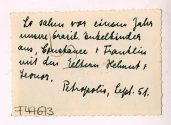 So sahen vor einem Jahr
unsere brasil. Enkelkinder
aus, Constance + Franklin
mit den Eltern Helmut +
Leonor.
Petropolis, Sept. 51.
F44613